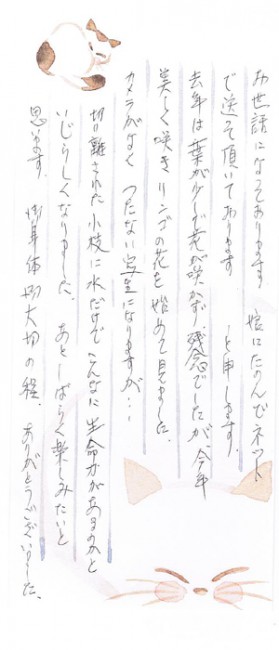 お世話になっております 娘にたのんでネット
で送って頂いております と申します。
去年は葉が少しか花が咲かず残念でしたが、今年
美しく咲きリンゴの花を始めて見ました。
カメラがなく つたない写生になりますが…
切り離された小枝に水だけでこんなに生命力があるのかと
いじらしくなりました。 あとしばらく楽しみたいと
思います。 御身体御大切の程、ありがとうございました。